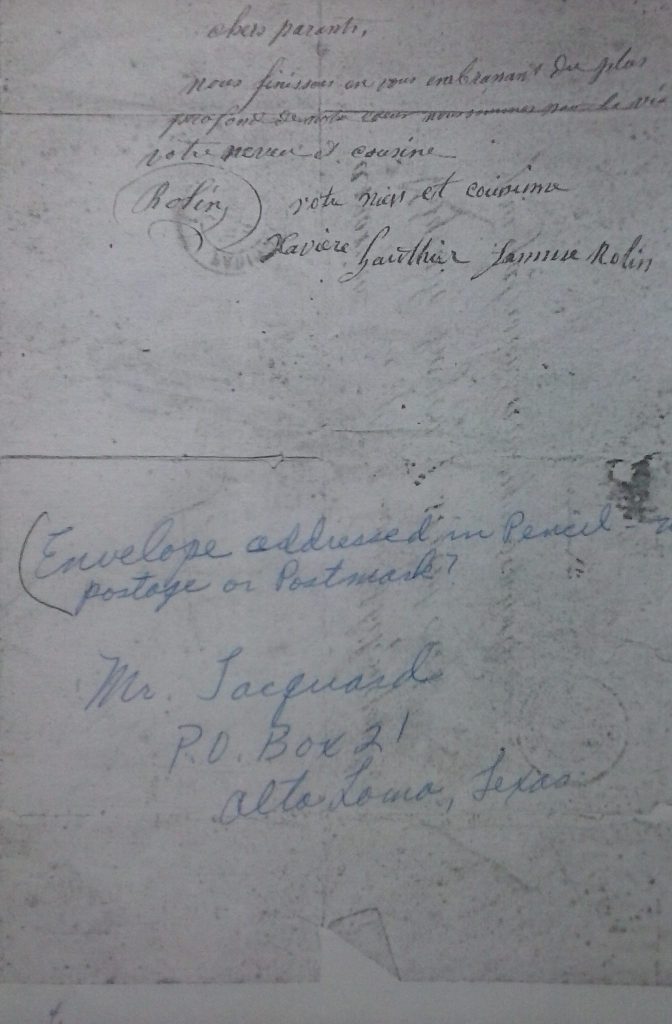 chers parents,
nous finissons en vous embrassant du plus
profond de notre coeur nous sommes pour la vie
votre neveu et cousine
Rolin votre niess et cousinne
Xavière Gauthier Rolin
(Envelope addressed in Pencil -
postage or Postmark?
Mr. Jacquard
P.O. Box 21
Alta Loma, Texas